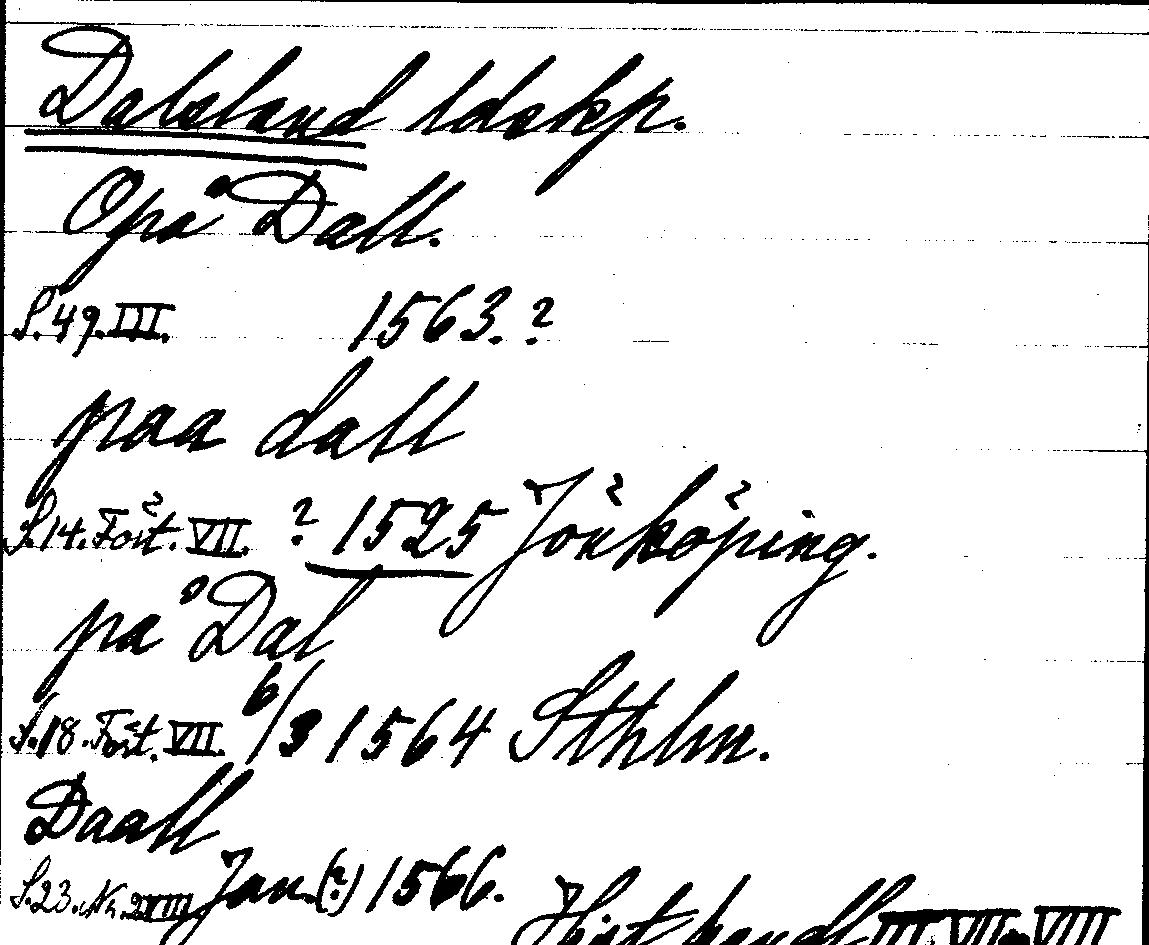 Dalsland ldskp.
Opå Dall.
S.49.III. 1563.?
paa dall
S.14.Fört.VII. ? 1525 Jönköping.
på Dal
S.18.Fört.VII. 6/3 1564 Sthlm.
Daall
S.23.Nr.2.VIII. Jan.(?) 1566.
Hist. handl. III. VII o VIII